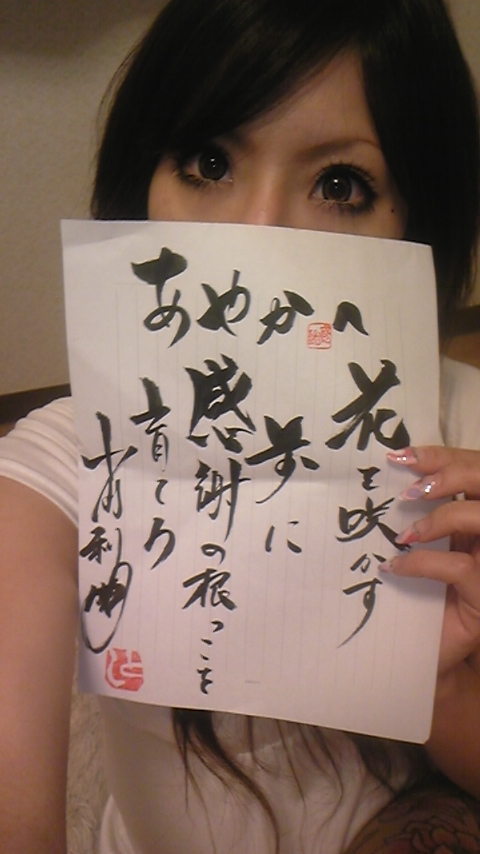 あやかへ
花を咲かす
前に
感謝の根っこを
育てろ